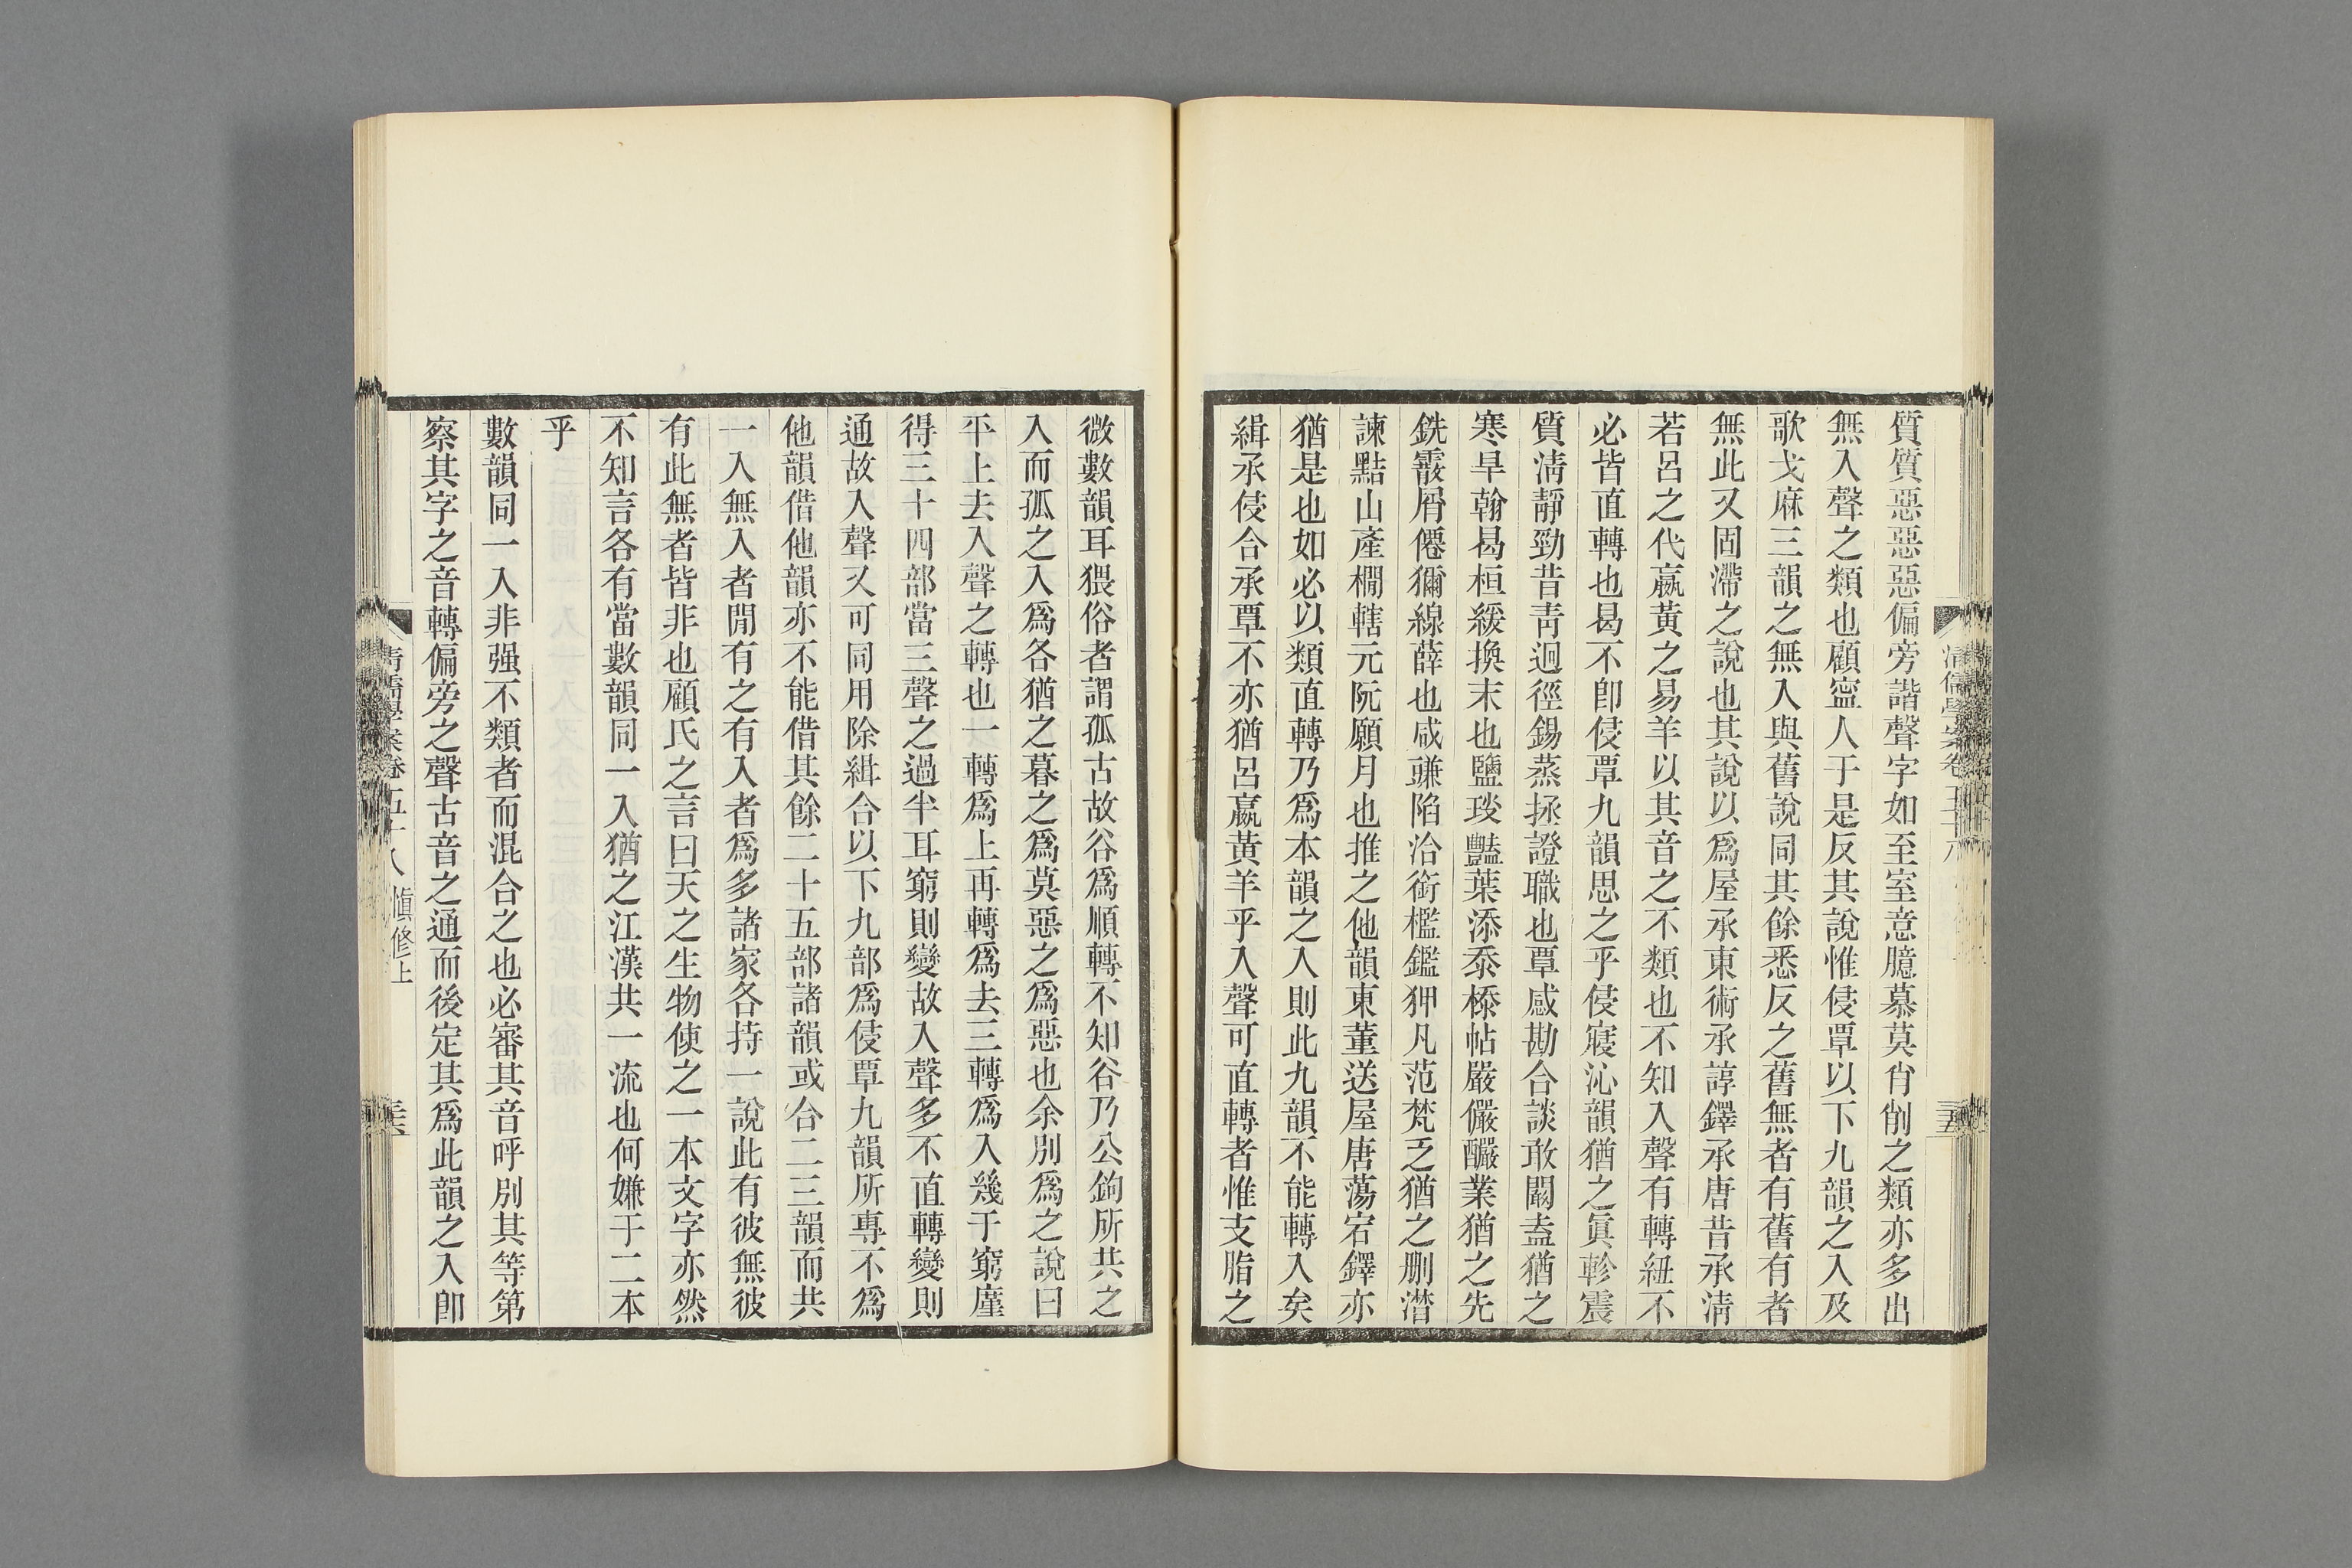 質質惡惡惡偏旁諧聲字如至室意臆慕莫肖削之類亦多出
無入聲之類也顧寍人于是反其說惟侵覃以下九韻之入及
歌戈麻三韻之無入與舊說同其餘悉反之舊無者有舊有者
無此又固滯之說也其說以爲屋承東術承諄鐸承唐昔承淸
若呂之代嬴黃之易羊以其音之不類也不知入聲有轉紐不
必皆直轉也曷不卽侵覃九韻思之乎侵寑沁韻猶之眞軫震
質淸靜勁昔靑迥徑錫蒸拯證職也覃感勘合談敢闞盍猶之
寒旱翰曷桓緩換末也鹽琰豔葉添忝㮇帖嚴儼釅業猶之先
銑霰屑僊獮線薛也咸豏陷洽銜檻鑑狎凡范梵乏猶之刪潸
諫黠山產橺轄元阮願月也推之他韻東董送屋唐蕩宕鐸亦
猶是也如必以類直轉乃爲本韻之入則此九韻不能轉入矣
緝承侵合承覃不亦猶呂嬴黃羊乎入聲可直轉者惟支脂之
微數韻耳猥俗者謂孤古故谷爲順轉不知谷乃公鉤所共之
入而孤之入爲各猶之暮之爲莫惡之爲惡也余別爲之說曰
平上去入聲之轉也一轉爲上再轉爲去三轉爲入幾于窮廑
得三十四部當三聲之過半耳窮則變故入聲多不直轉變則
通故入聲又可同用除緝合以下九部爲侵覃九韻所專不爲
他韻借他韻亦不能借其餘二十五部諸韻或合二三韻而共
一入無入者閒有之有入者爲多諸家各持一說此有彼無彼
有此無者皆非也顧氏之言曰天之生物使之一本文字亦然
不知言各有當數韻同一入猶之江漢共一流也何嫌于二本
乎
數韻同一入非强不類者而混合之也必審其音呼別其等第
察其字之音轉偏旁之聲古音之通而後定其爲此韻之入卽
清儒學案卷五十八 愼修上